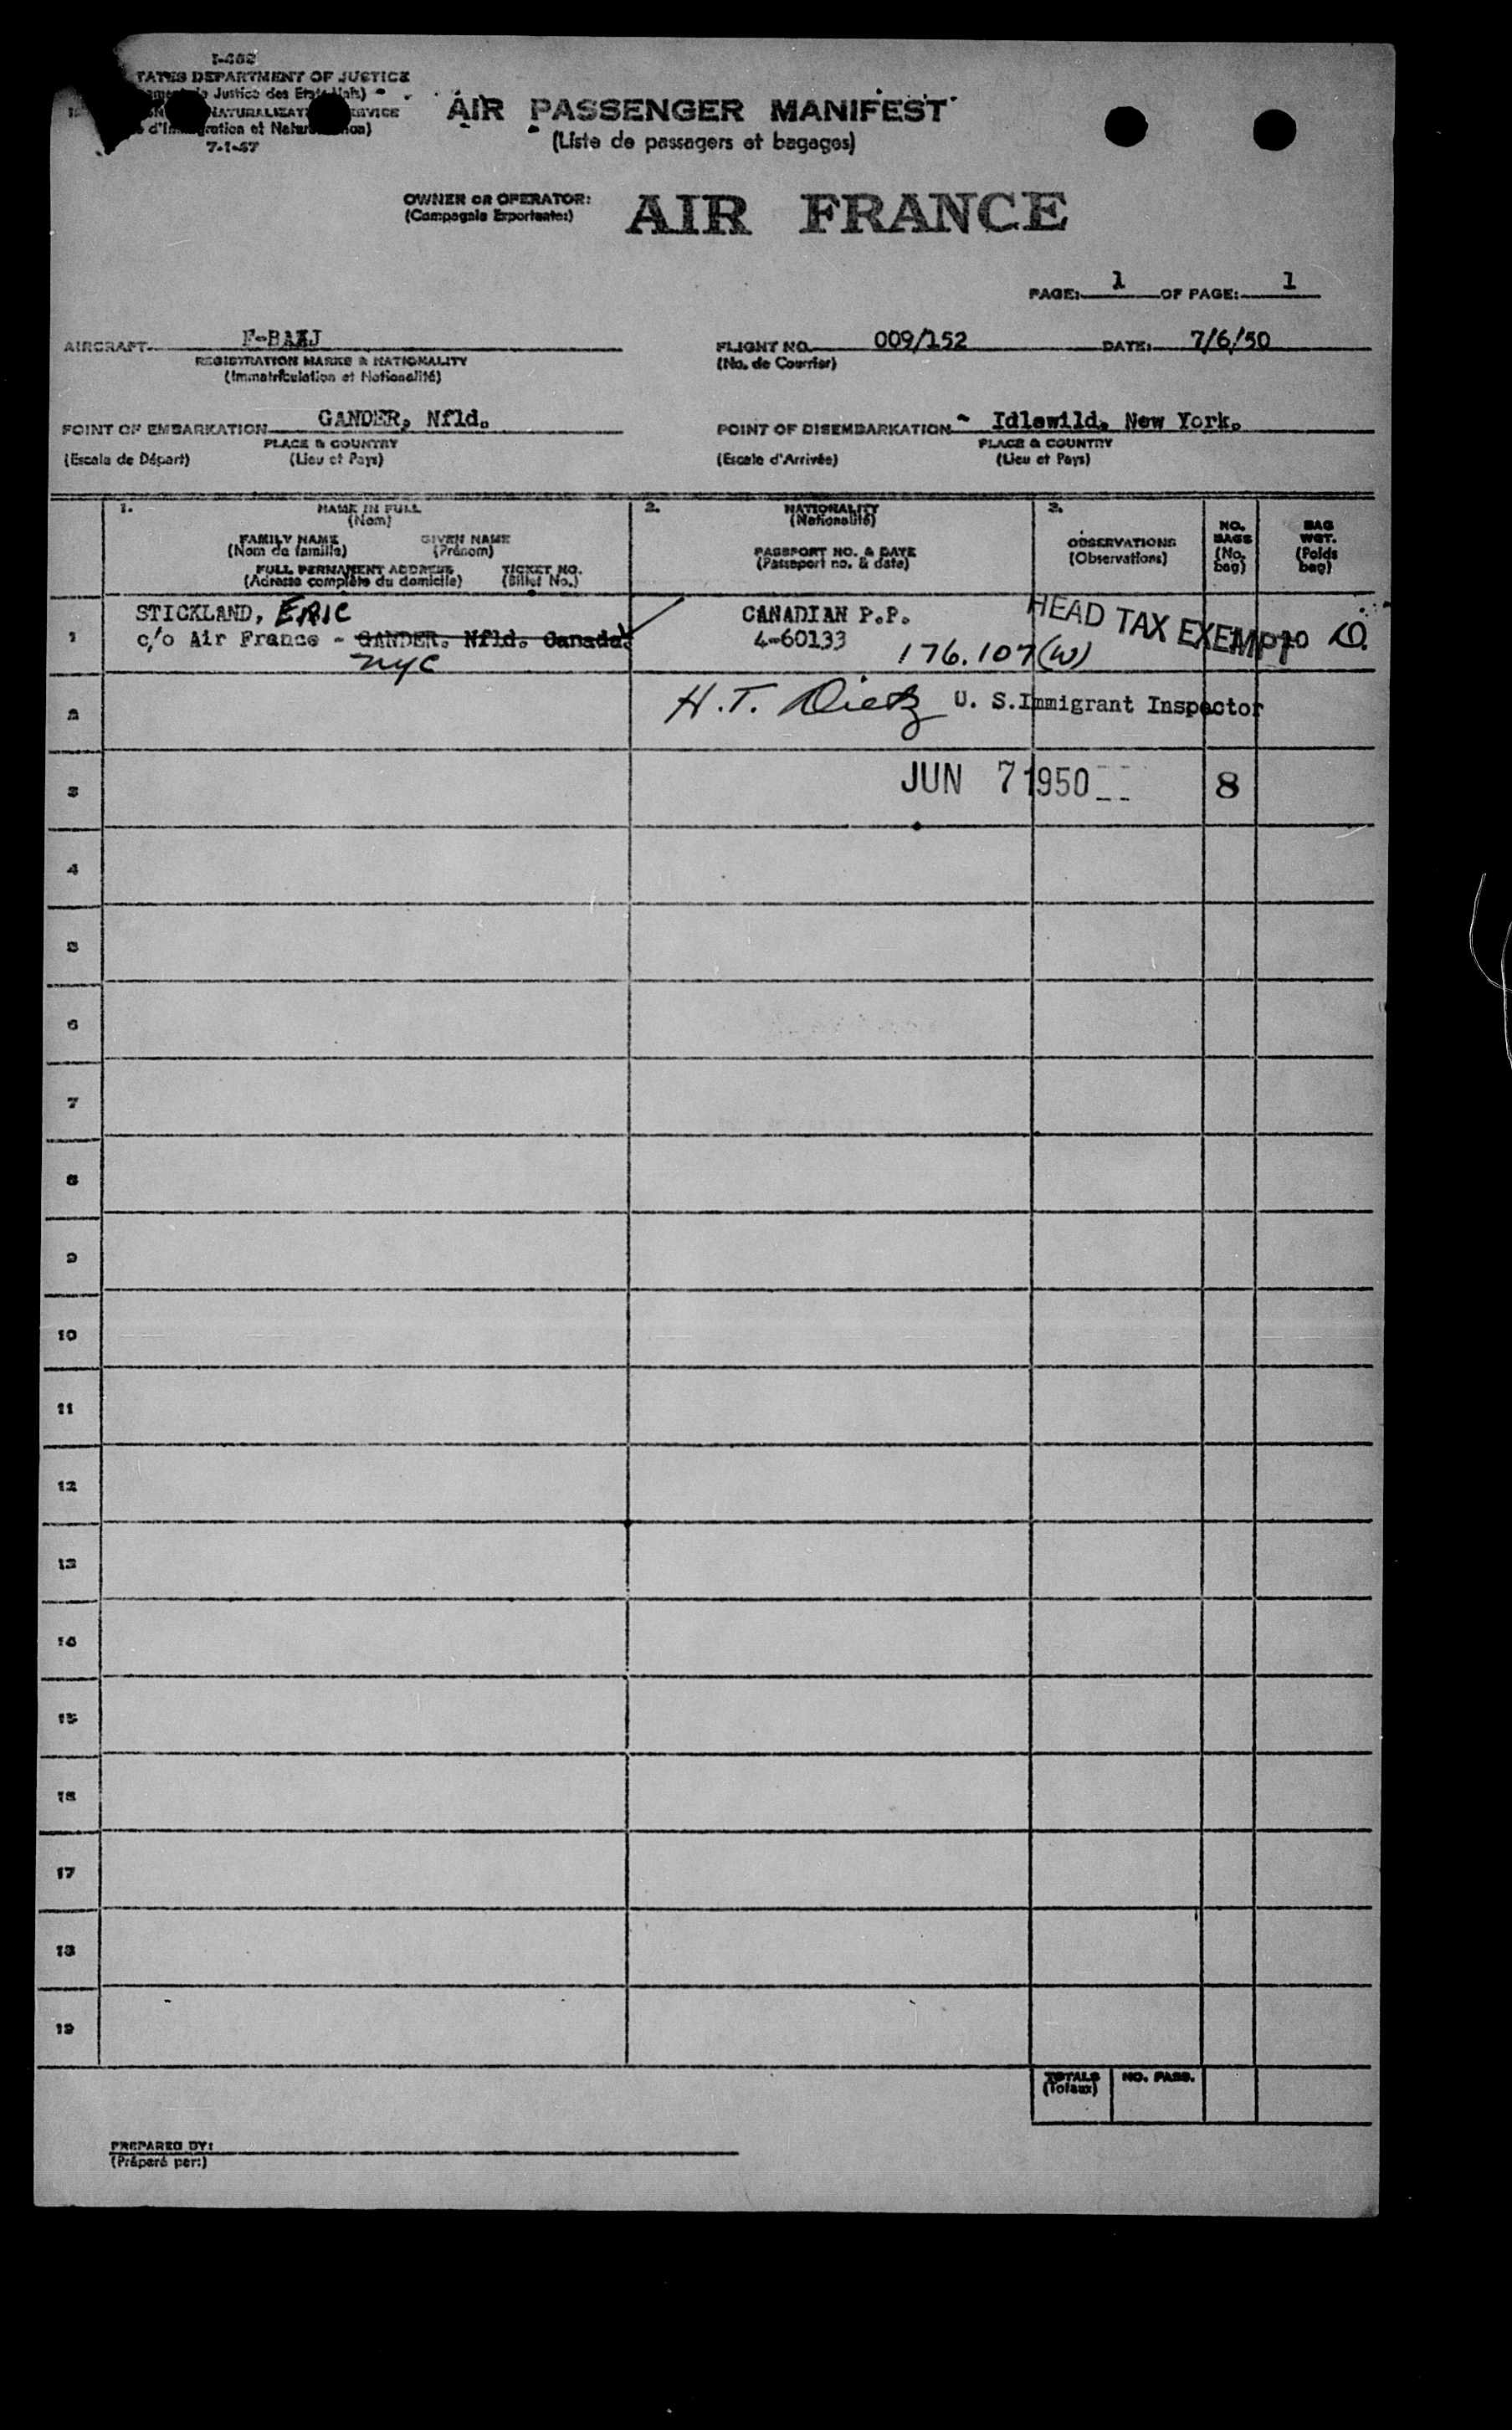 I-462
TATES DEPARTMENT OF JUSTICE
Justice des Etats
NATURALIZAT
7-1-47
AIR PASSENGER MANIFEST
(Liste de passagers et bagages)
OWNER OR OPERATOR:
(Compagnie Exportante:)
AIR FRANCE
PAGE: 1 OF PAGE: 1
AIRCRAFT
REGISTRATION MARKS & NATIONALITY
(Immatriculation et Nationalité)
FLIGHT NO. 009/152 DATE: 7/6/50
(No. de Courrier)
POINT OF EMBARKATION GANDER, Nfld.
PLACE & COUNTRY
(Escale de Départ) (Lieu et Pays)
POINT OF DISEMBARKATION - Idlewild, New York.
PLACE & COUNTRY
(Escale d'Arrivée) (Lieu et Pays)
1. NAME IN FULL
(Nom)
FAMILY NAME GIVEN NAME
(Nom de famille) (Prénom)
FULL PERMANENT ADDRESS TICKET NO.
(Adresse complète du domicile) (Billet No.)
2. NATIONALITY
(Nationalité)
PASSPORT NO. & DATE
(Passeport no. & date)
3.
OBSERVATIONS
(Observations)
NO.
BAGS
(No.
bag)
BAG
WGT.
(Poids
bag)
1
STICKLAND, ERIC
c/o Air France - GANDER. Nfld. Canada.
NYC
CANADIAN P.P.
4-60133
176.107(W)
HEAD TAX EXEMPT
2
H.T. Dietz U. S.Immigrant Inspector
3
JUN 7 1950
8
4
5
6
7
8
9
10
11
12
13
14
15
16
17
18
19
TOTALS NO. PASS.
(Totaux)
PREPARED BY:
(Préparé par:)